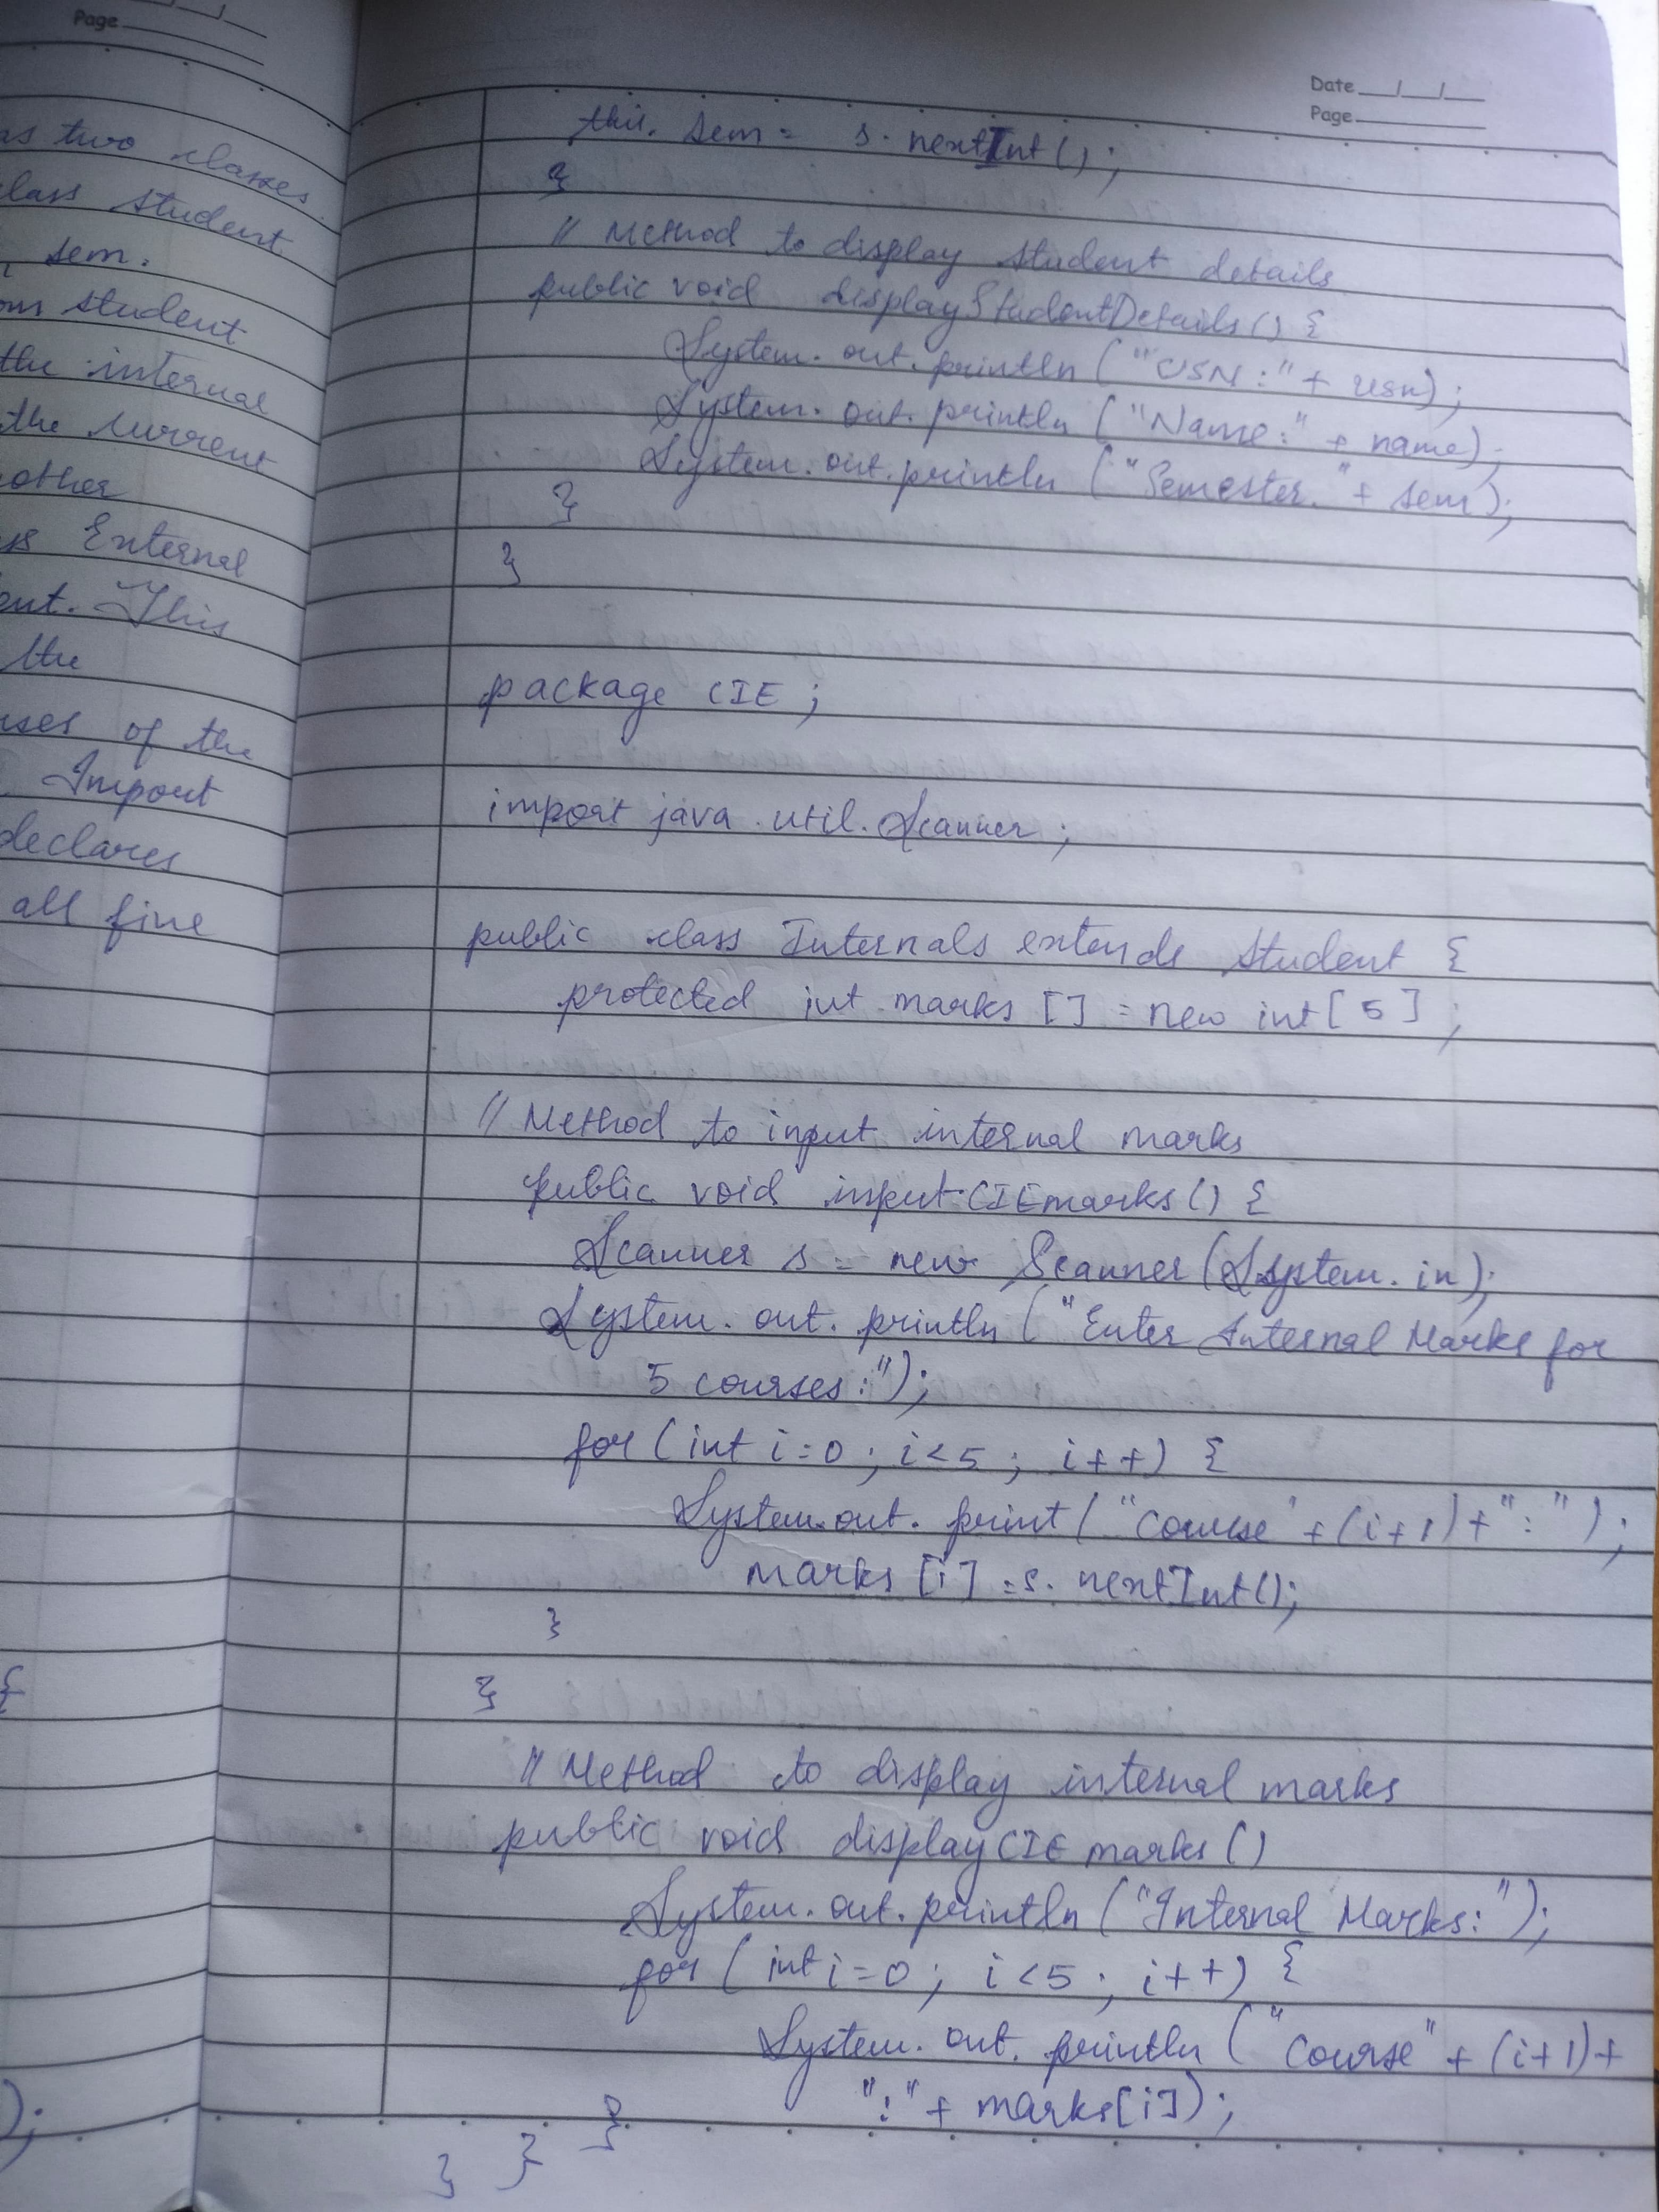 Page
as two classes
lass student
sem.
om student
the internal
the current
other
ss External
ent. This
the
ses of the
Import
declares
all fine
{
);
Date __/__/__
Page
this. sem = s. nextInt();
}
// Method to display student details
public void displayStudentDetails() {
System. out. println ("USN:" + usn);
System. out. println ("Name:" + name);
System. out. println ("Semester." + sem);
}
}
package CIE ;
import java . util. Scanner ;
public class Internals extends Student {
protected int marks [] = new int [5] ;
// Method to input internal marks
public void inputCIEmarks() {
Scanner s = new Scanner (System. in);
System. out. println ("Enter Internal Marks for
5 courses :");
for (int i=0 ; i<5 ; i++) {
System.out. print ("Course" + (i+1) + ":");
marks [i] =s. nextInt();
}
}
// Method to display internal marks
public void displayCIEmarks ()
System. out. println ("Internal Marks:");
for (int i=0 ; i<5 ; i++) {
System. out. println ("Course" + (i+1)+
":" + marks[i]);
} } }